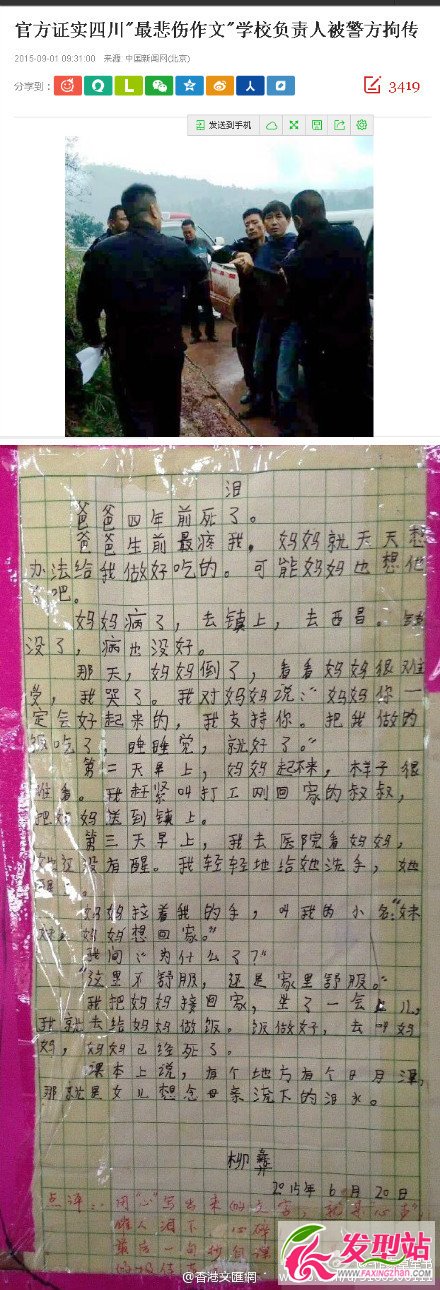 官方证实四川"最悲伤作文"学校负责人被警方拘传
2015-09-01 09:31:00 来源: 中国新闻网(北京)
分享到：
3419
发送到手机
泪
爸爸四年前死了。
爸爸生前最疼我。妈妈就天天想
办法给我做好吃的。可能妈妈也想他
了吧。
妈妈病了，去镇上，去西昌。钱
没了，病也没好。
那天，妈妈倒了，看看妈妈很难
受，我哭了。我对妈妈说：“妈妈你一
定会好起来的，我支持你。把我做的
饭吃了，睡睡觉，就好了。”
第二天早上，妈妈起不来，样子很
难看。我赶紧叫打工刚回家的叔叔，
把妈妈送到镇上。
第三天早上，我去医院看妈妈，
她还没有醒。我轻轻地给她洗手，她
醒
妈妈拉着我的手，叫我的小名：“妹
妹，妈妈想回家。”
我问：“为什么了？”
“这里不舒服，还是家里舒服。”
我把妈妈接回家，坐了一会儿，
我就去给妈妈做饭。饭做好，去叫妈
妈，妈妈已经死了。
课本上说，有个地方有个日月潭，
那就是女儿想念母亲流下的泪水。
柳彝
2015年6月20日
点评：用“心”写出来的文字，
催人泪下
最后一句
@香港文匯網
发型站
FAXINGZHAN.COM